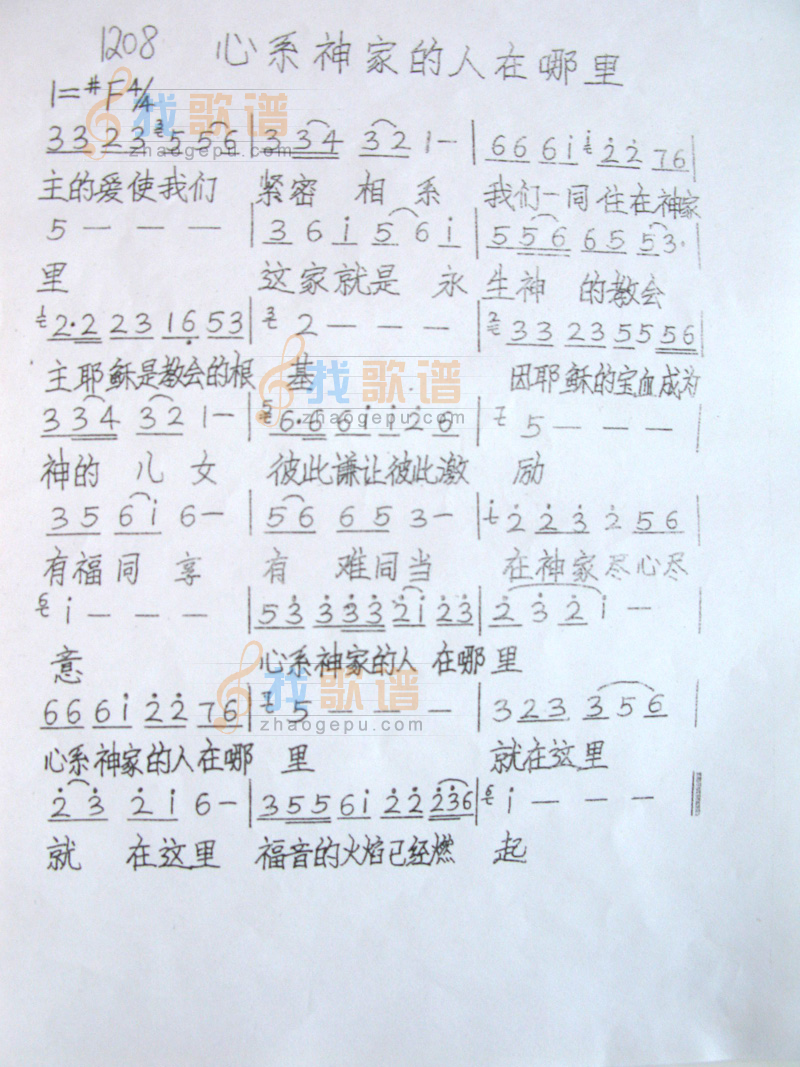 1208 心系神家的人在哪里
1=#F 4/4
3 3 2 3 5 5 5 6 | 3 3 4 3 2 1 — | 6 6 6 i 2 2 7 6 |
主的爱使我们 紧密 相系 我们一同住在神家
5 — — — | 3 6 i 5 6 i | 5 5 6 6 5 5 3. |
里 这家就是 永生神 的教会
2. 2 2 3 1 6 5 3 | 2 — — — | 3 3 2 3 5 5 5 6 |
主耶稣是教会的根 基 因耶稣的宝血成为
3 3 4 3 2 1 — | 6. 6 6 i i 2 6 | 5 — — — |
神的 儿女 彼此谦让彼此激 励
3 5 6 i 6 — | 5 6 6 5 3 — | 2 2 3 2 5 6 |
有福同享 有难同当 在神家尽心尽
i — — — | 5 3 3 3 3 2 i 2 3 | 2 3 2 i — |
意 心系神家的人 在哪里
6 6 6 i 2 2 7 6 | 5 — — — | 3 2 3 3 5 6 |
心系神家的人在哪 里 就在这里
2 3 2 i 6 — | 3 5 5 6 i 2 2 2 3 6 | i — — — ‖
就 在这里 福音的火焰已经燃 起
找歌谱
zhaogepu.com
找歌谱
zhaogepu.com
找歌谱
zhaogepu.com
找歌谱
zhaogepu.com